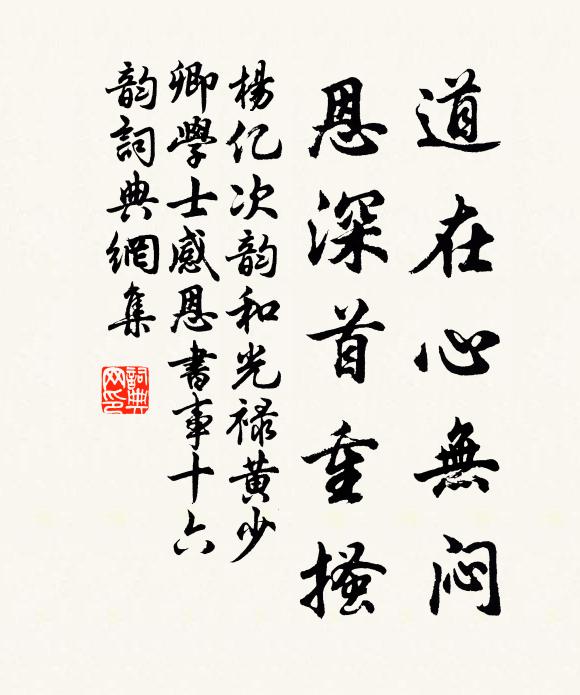 道在心無闷
恩深首重搔
楊亿次韵和光禄黄少
卿學士感恩書事十六
韵詞典網集
詞典网印